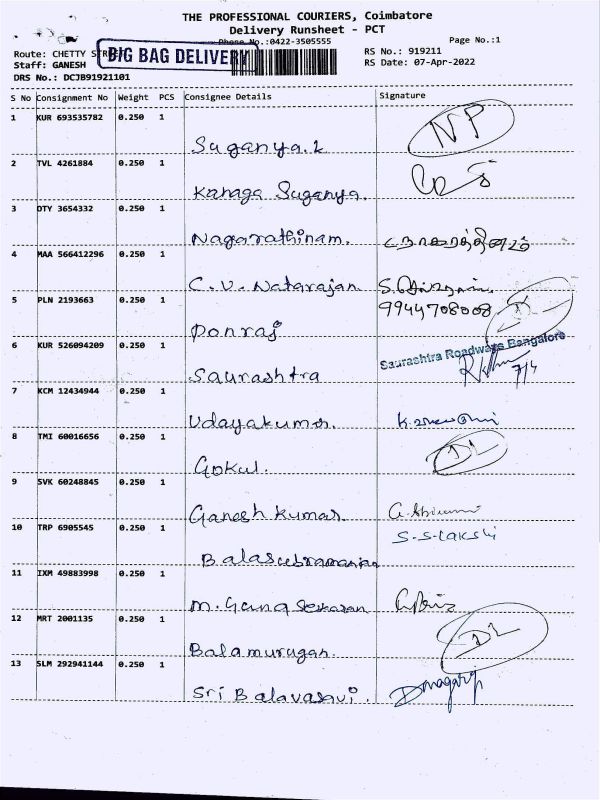 THE PROFESSIONAL COURIERS, Coimbatore
Delivery Runsheet - PCT
Phone No.:0422-3505555
Page No.:1
Route: CHETTY STREET
BIG BAG DELIVERY
RS No.: 919211
Staff: GANESH
RS Date: 07-Apr-2022
DRS No.: DCJB91921101
S No Consignment No Weight PCS Consignee Details Signature
1 KUR 693535782 0.250 1 Suganya.L NP
2 TVL 4261884 0.250 1 Kanaga Suganya.
3 OTY 3654332 0.250 1 Nagarathinam.
4 MAA 566412296 0.250 1 C.V. Natarajan
9944708008
5 PLN 2193663 0.250 1 Ponraj
6 KUR 526094209 0.250 1 Saurashtra Saurashtra Roadways Bangalore
7/4
7 KCM 12434944 0.250 1 Udayakumar.
8 TMI 60016656 0.250 1 Gokul. DL
9 SVK 60248845 0.250 1 Ganesh kumar
10 TRP 6905545 0.250 1 Balasubramanian S-S-Lakshi
11 IXM 49883998 0.250 1 M. Gunasekaran
12 MRT 2001135 0.250 1 Balamurugan DL
13 SLM 292941144 0.250 1 Sri Balavasavi.